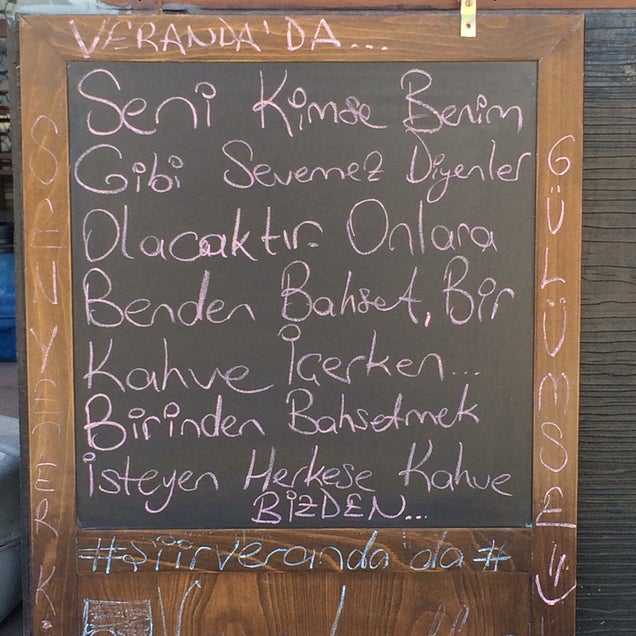 VERANDA'DA...
Seni Kimse Benim
Gibi Sevemez Diyenler
Olacaktır. Onlara
Benden Bahset, Bir
Kahve İçerken...
Birinden Bahsetmek
isteyen Herkese Kahve
BİZDEN...
#şiirveranda'da#
SEN YETER Kİ
GÜLÜMSE